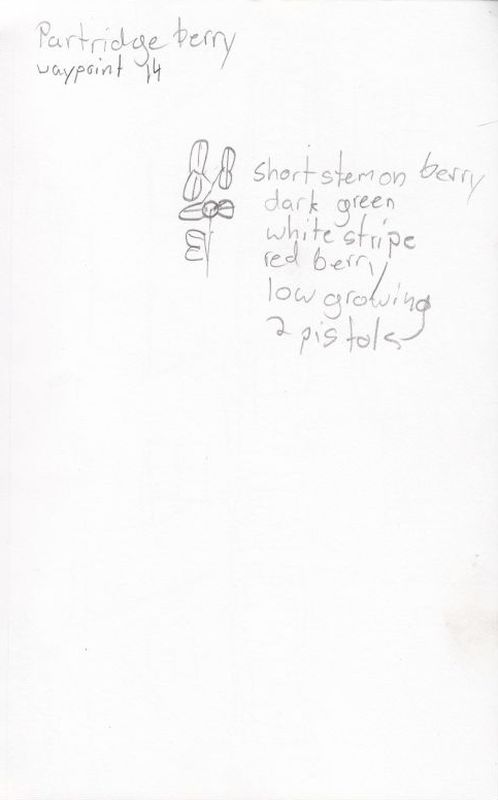 Partridge berry
waypoint 14
short stem on berry
dark green
white stripe
red berry
low growing
2 pistols